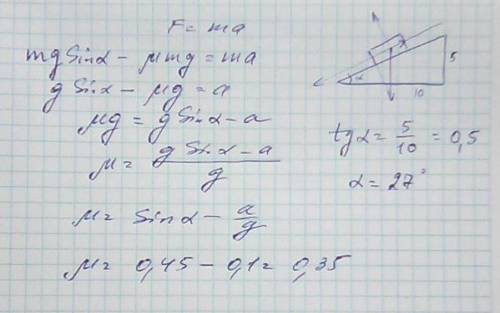 F = ma
mg Sinα − μmg = ma
g Sinα − μg = a
μg = g Sinα − a
μ = (g Sinα − a) / g
μ = Sinα − a/g
μ = 0,45 − 0,1 = 0,35
α
5
10
tgα = 5/10 = 0,5
α = 27°